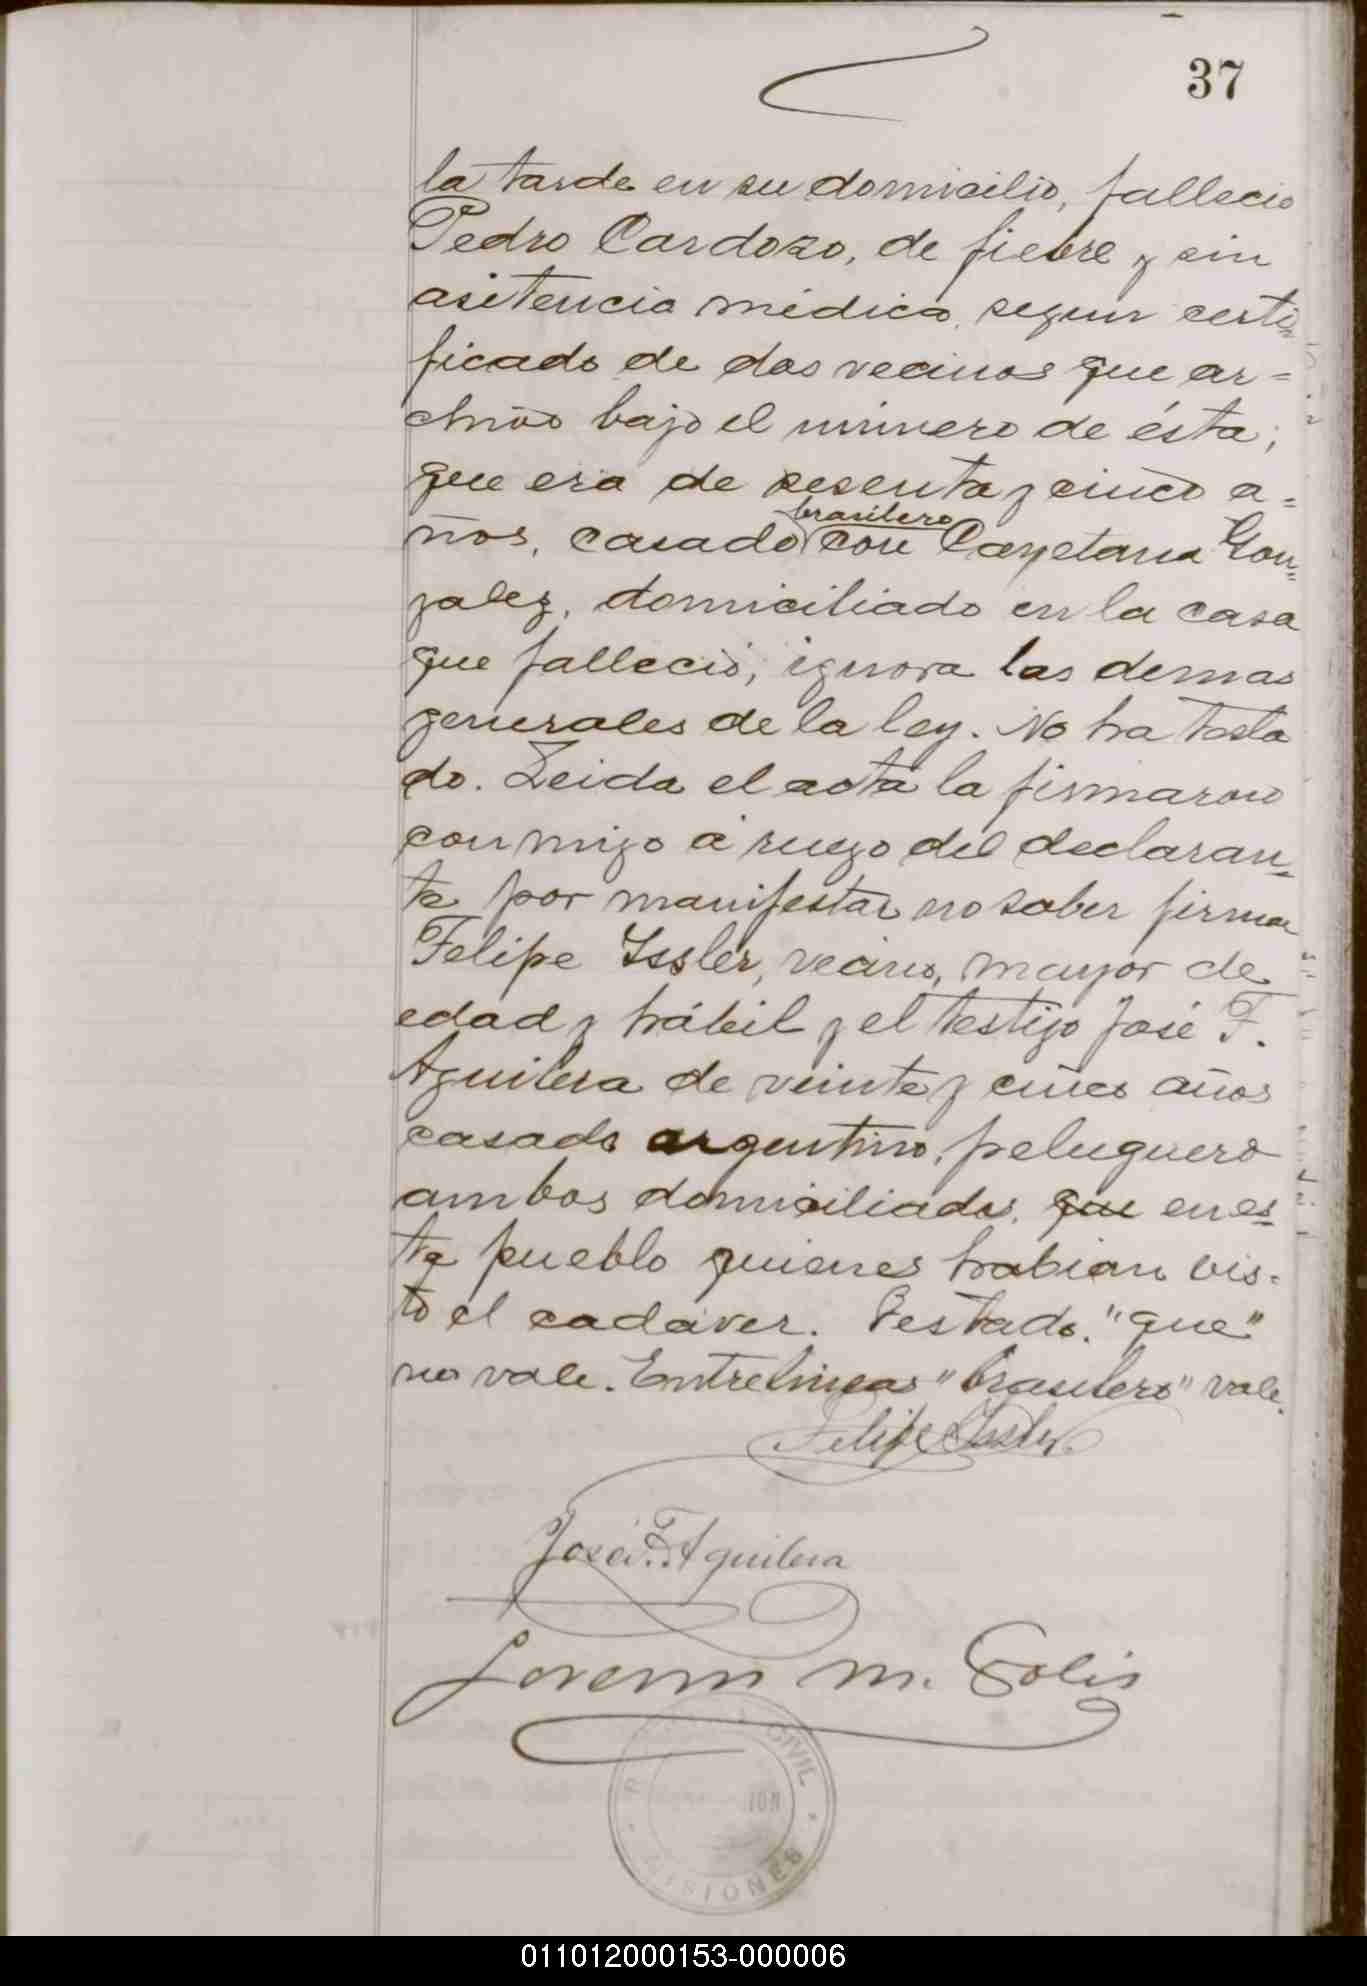 37
la tarde en su domicilio, fallecio
Pedro Cardozo, de fiebre y sin
asitencia médica, segun certi-
ficado de dos vecinos que ar=
chivo bajo el número de ésta;
que era de sesenta y cinco a=
brasilero
ños, casado con Cayetana Gon=
zalez, domiciliado en la casa
que falleció, ignora las demas
generales de la ley. No ha testa
do. Leida el acta la firmaron
conmigo á ruego del declaran=
te por manifestar no saber firmar
Felipe Issler, vecino, mayor de
edad y hábil y el testigo José F.
Aguilera de veinte y cinco años
casado argentino, peluquero
ambos domiciliados, que en es=
te pueblo quienes habian vis-
to el cadáver. Testado. "que"
no vale. Entrelineas "brasilero" vale.
Felipe Issler
José F. Aguilera
M. Solis
CIVIL
MISIONES
011012000153-000006